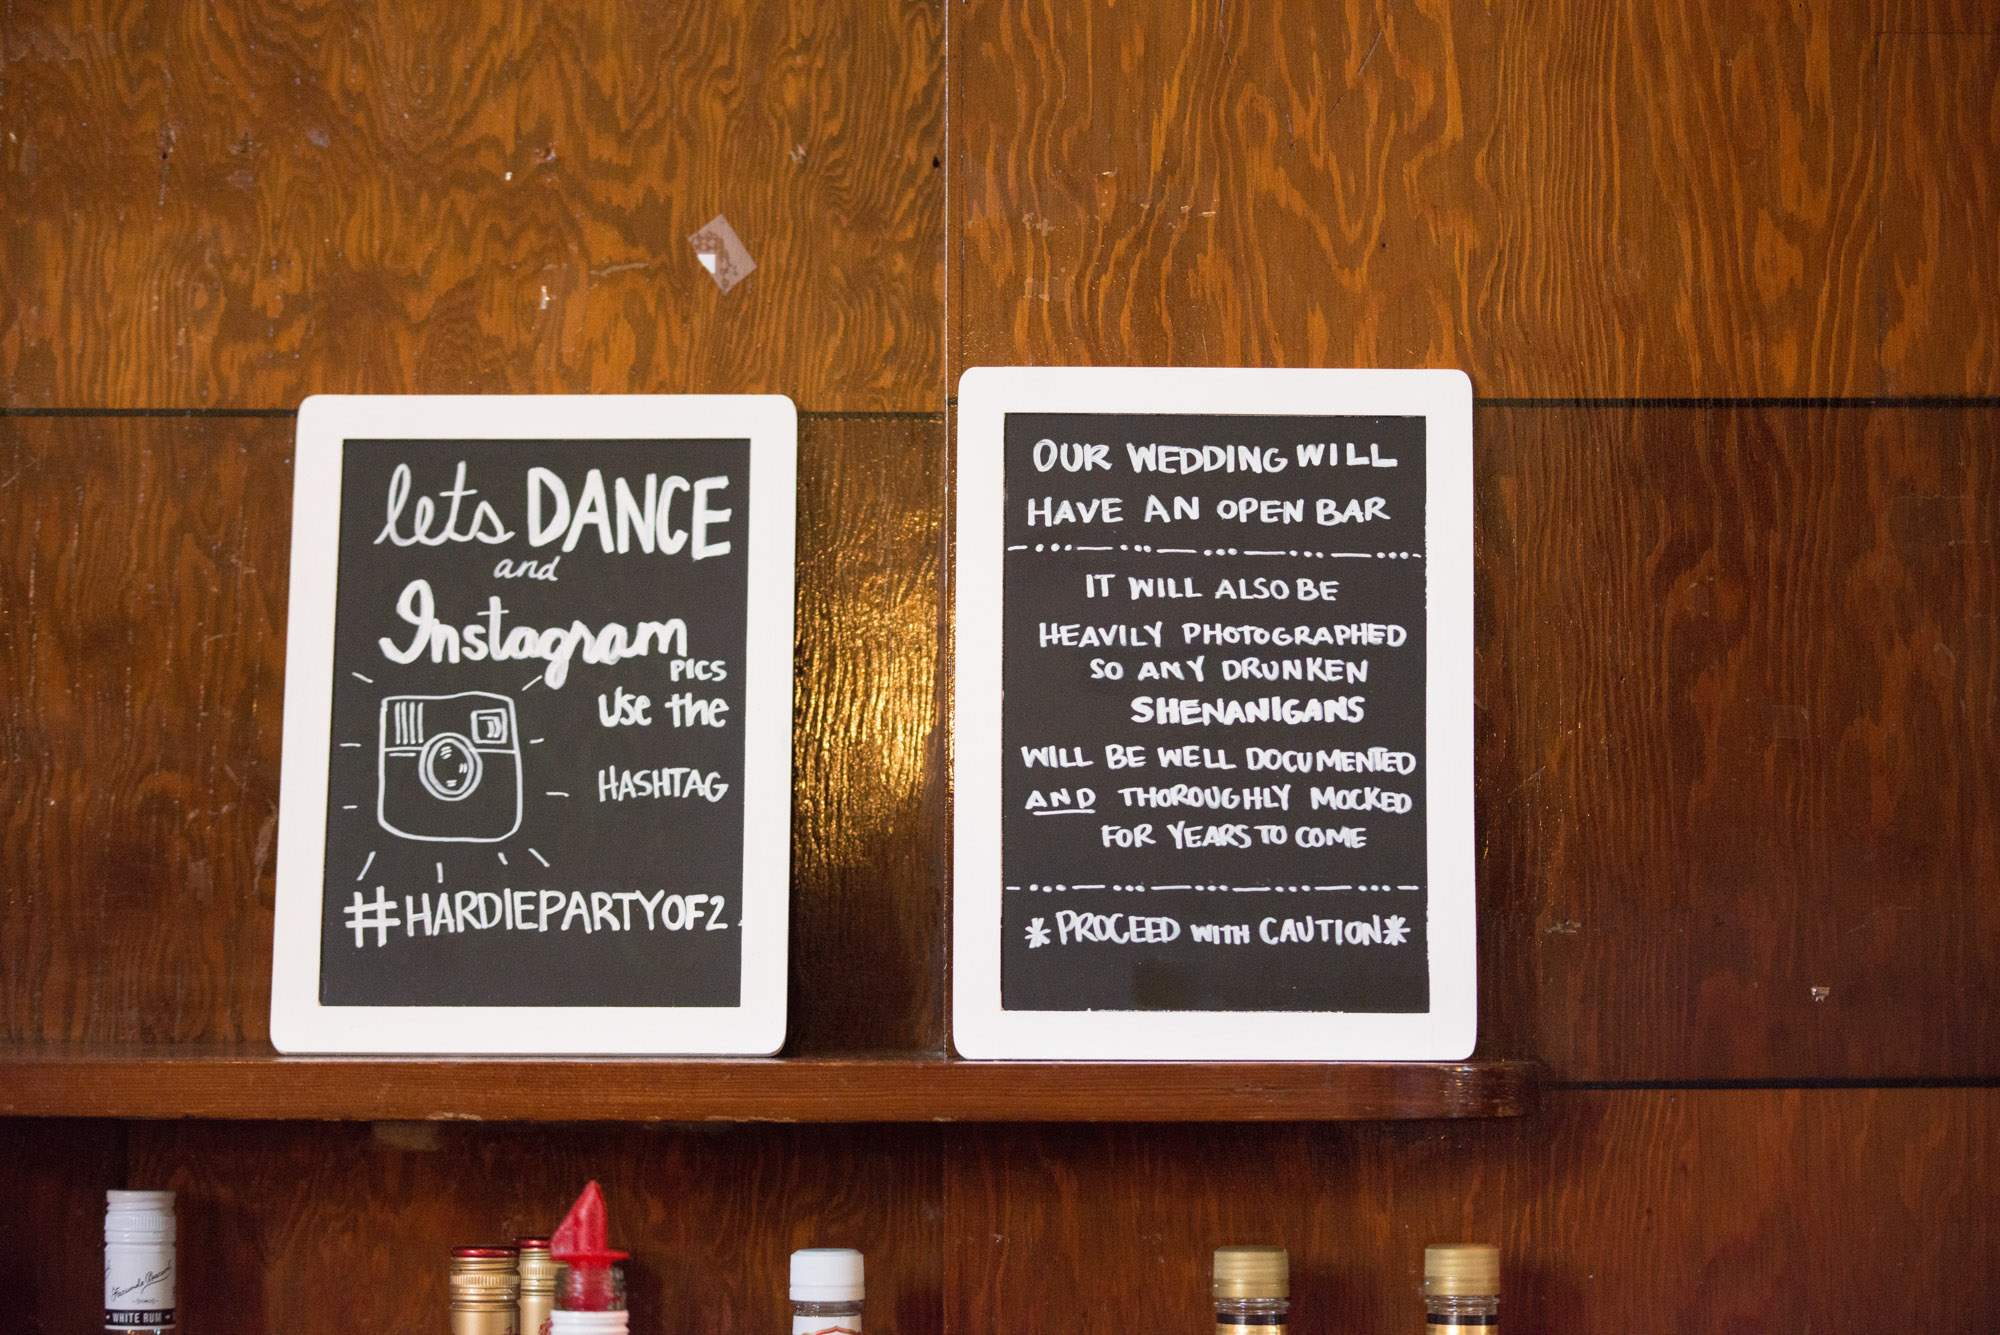 lets DANCE
and
Instagram
PICS
Use the
HASHTAG
#HARDIEPARTYOF2
OUR WEDDING WILL
HAVE AN OPEN BAR
IT WILL ALSO BE
HEAVILY PHOTOGRAPHED
SO ANY DRUNKEN
SHENANIGANS
WILL BE WELL DOCUMENTED
AND THOROUGHLY MOCKED
FOR YEARS TO COME
*PROCEED WITH CAUTION*
WHITE RUM